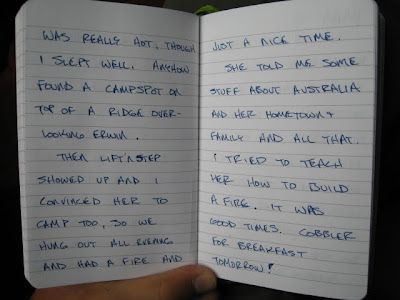 WAS REALLY HOT, THOUGH
I SLEPT WELL. ANYHOW
FOUND A CAMPSPOT ON
TOP OF A RIDGE OVER-
LOOKING ERWIN.
THEN LIFT'N STEP
SHOWED UP AND I
CONVINCED HER TO
CAMP TOO, SO WE
HUNG OUT ALL EVENING
AND HAD A FIRE AND
JUST A NICE TIME.
SHE TOLD ME SOME
STUFF ABOUT AUSTRALIA
AND HER HOMETOWN &
FAMILY AND ALL THAT.
I TRIED TO TEACH
HER HOW TO BUILD
A FIRE. IT WAS
GOOD TIMES. COBBLER
FOR BREAKFAST
TOMORROW!